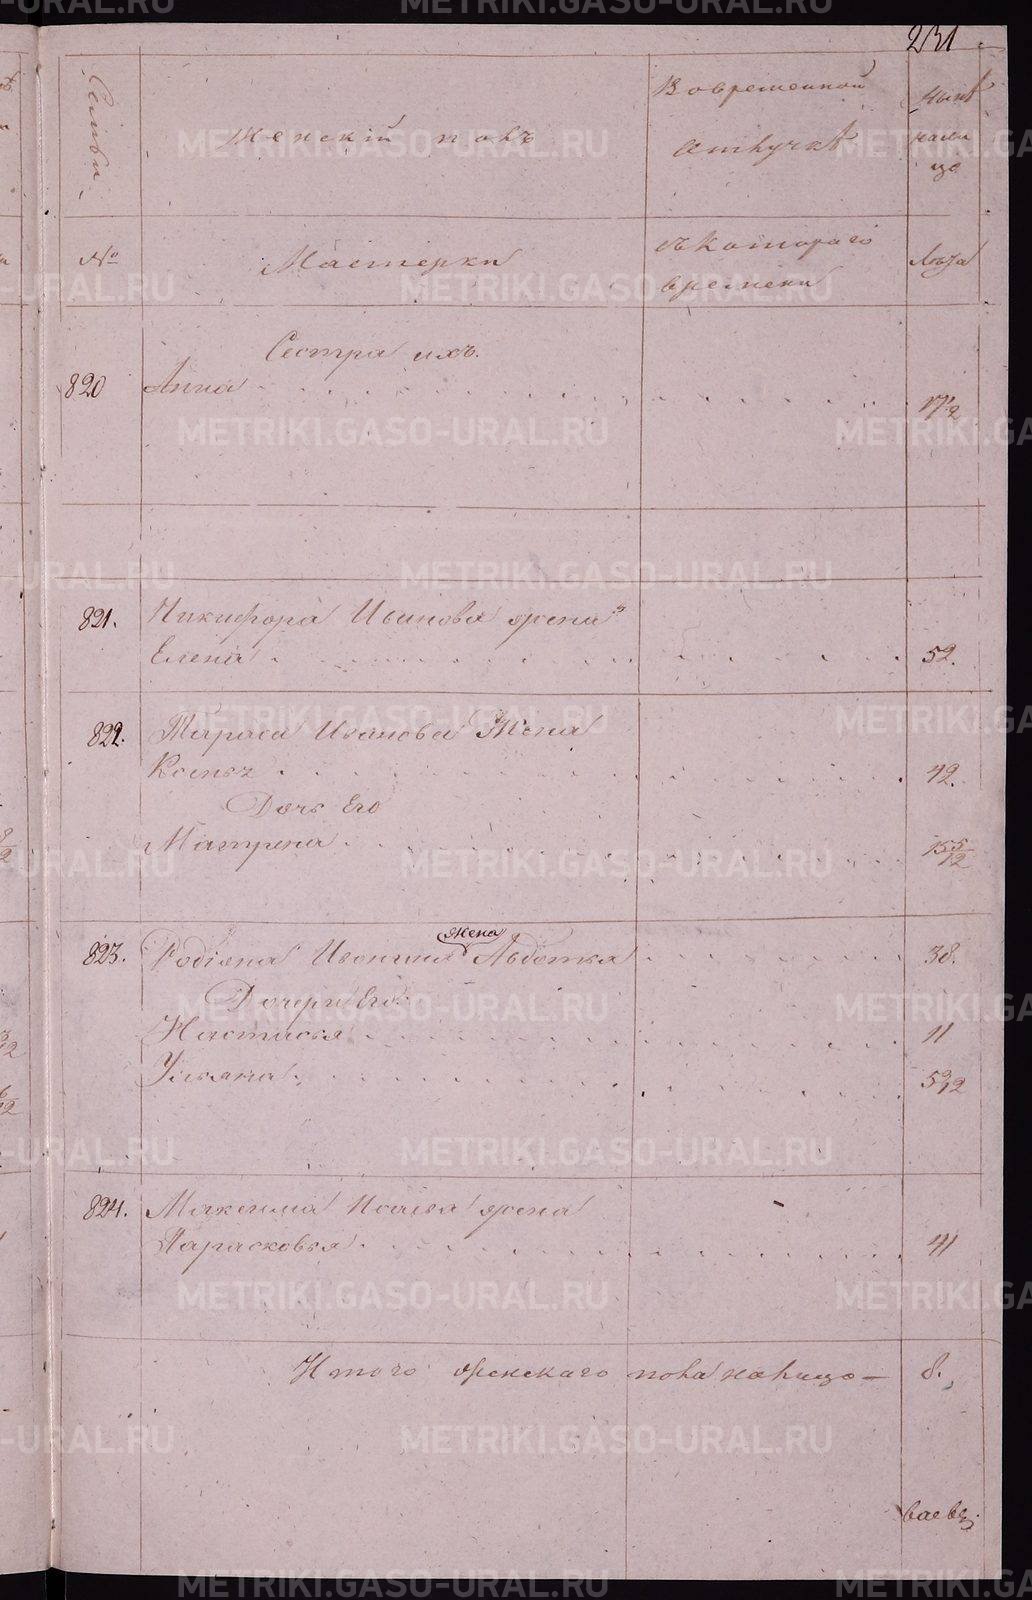 231
Семьи
Женскій полъ
Во временной
отлучкѣ
Нынѣ
на ли
цо
№
Мастерки
съ котораго
времени
Лѣта
Сестра ихъ.
820 Анна 17 1/2
821. Никифора Иванова жена
Елена 52.
822. Тараса Иванова Жена
42.
Дочь Его
Матрена 15 5/12
823. Родіона Иванина жена Авдотья 38.
Дочери Его:
Настасья 11
Ульяна
824. Максима Исаева жена
Парасковья 41
Итого женскаго пола налицо — 8.
METRIKI.GASO-URAL.RU